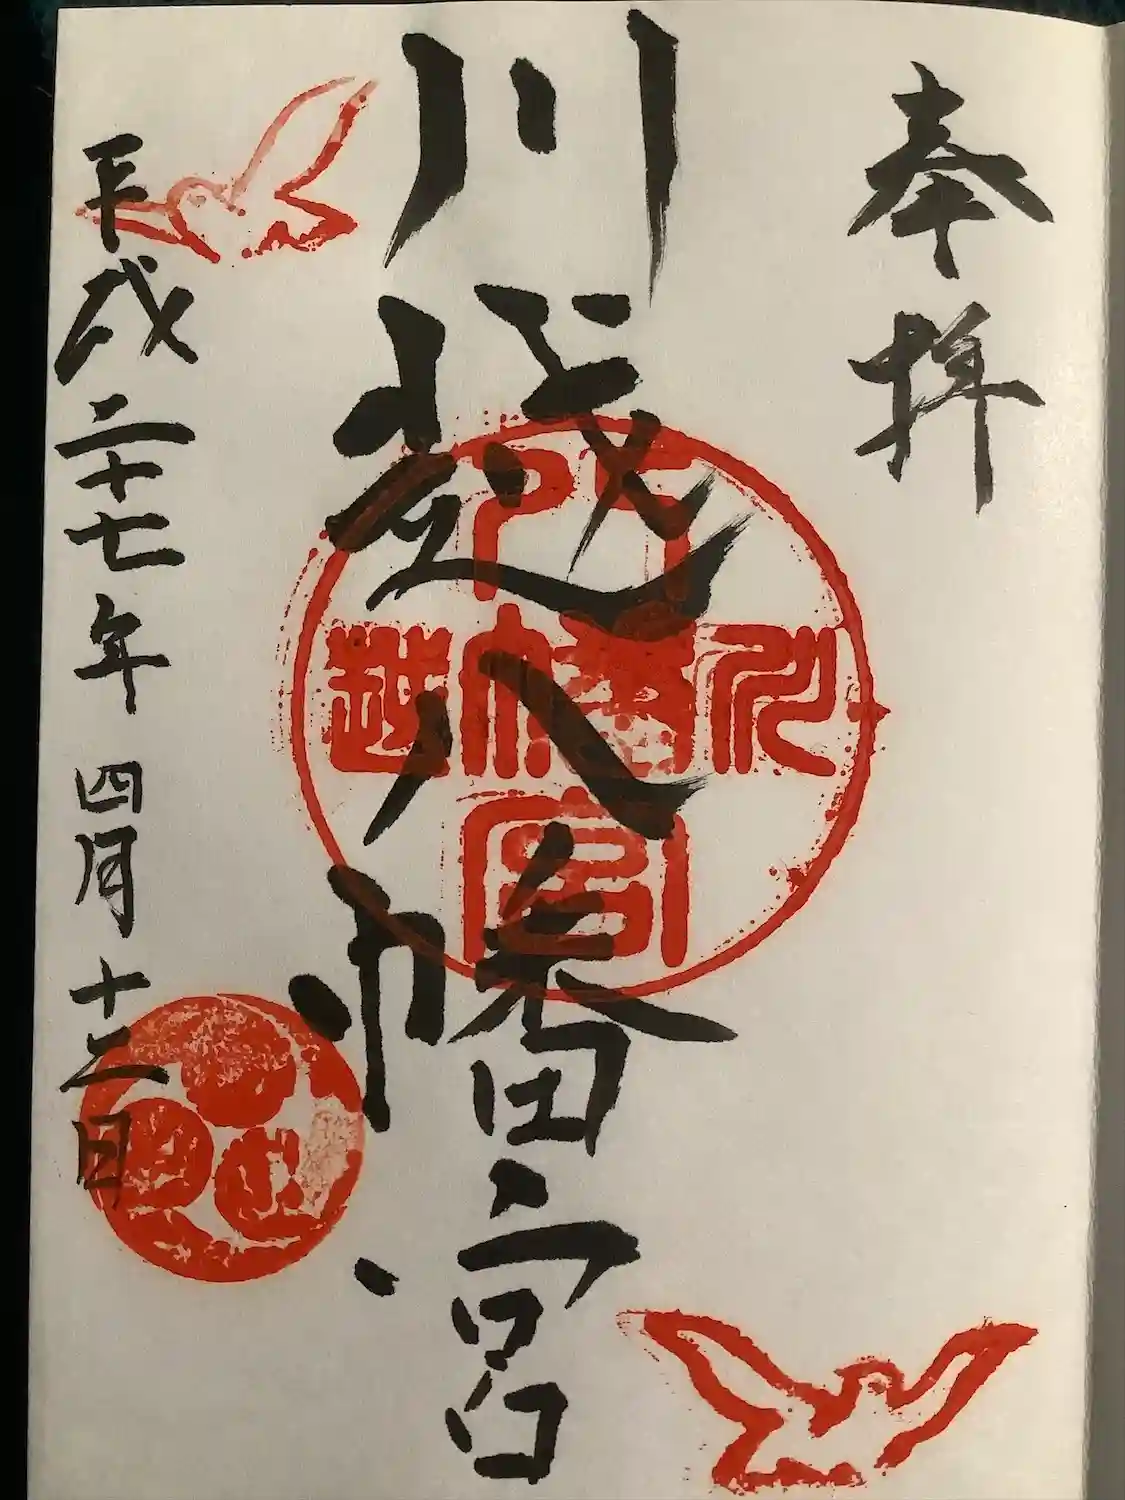 奉拝
川越八幡宮
八
川幡越
宮
平成二十七年四月十二日